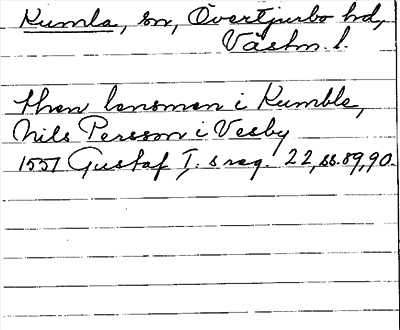 Kumla, sn, Övertjurbo hd,
Västm. l.
then lensman i Kumble,
Nils Persson i Vesby
1551 Gustaf I:s reg. 22, ss. 89, 90.